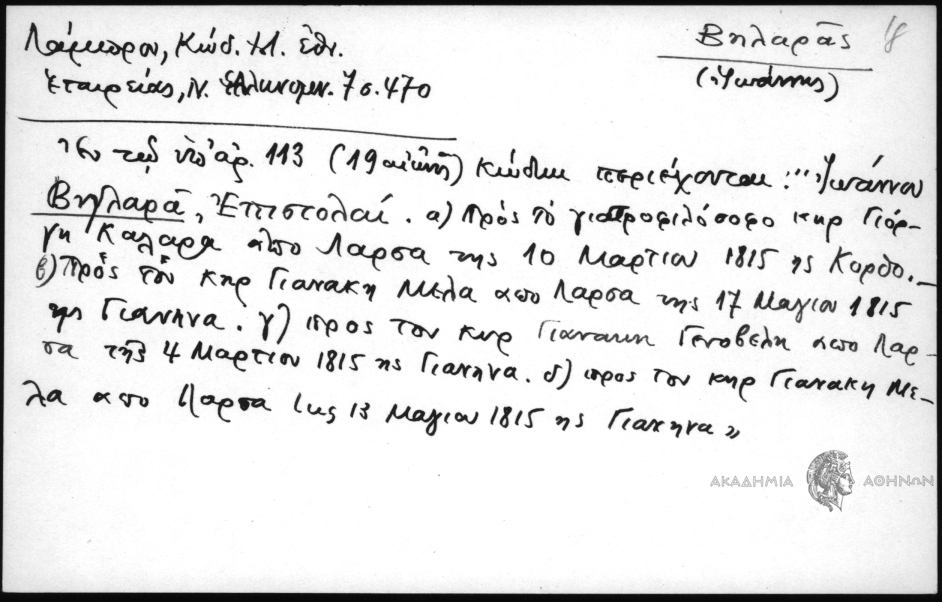 Λάμπρου, Κώδ. Ιστ. Ἐθν.
Ἑταιρείας, Ν. Ἑλληνομν. 7 σ. 470
Βηλαρᾶς
(Ἰωάννης)
18
Ἐν τῷ ὑπ' ἀρ. 113 (19 αἰῶνος) κώδικι περιέχονται: "Ἰωάννου
Βηλαρᾶ, Ἐπιστολαί. α) Πρὸς τὸ γιατροφιλόσοφο κηρ Γιόρ-
γη Καλαρα απο Λαρσα της 10 Μαρτιου 1815 ης Κορθο.—
β) Πρὸς τὸν κηρ Γιανακη Μελα απο Λαρσα της 17 Μαγιου 1815
ης Γιανηνα. γ) προς τον κηρ Γιανακη Γενοβελη απο Λαρ-
σα της 4 Μαρτιου 1815 ης Γιανηνα. δ) προς τον κηρ Γιανακη Με-
λα απο Λαρσα της 13 Μαγιου 1815 ης Γιανηνα»
ΑΚΑΔΗΜΙΑ ΑΘΗΝΩΝ